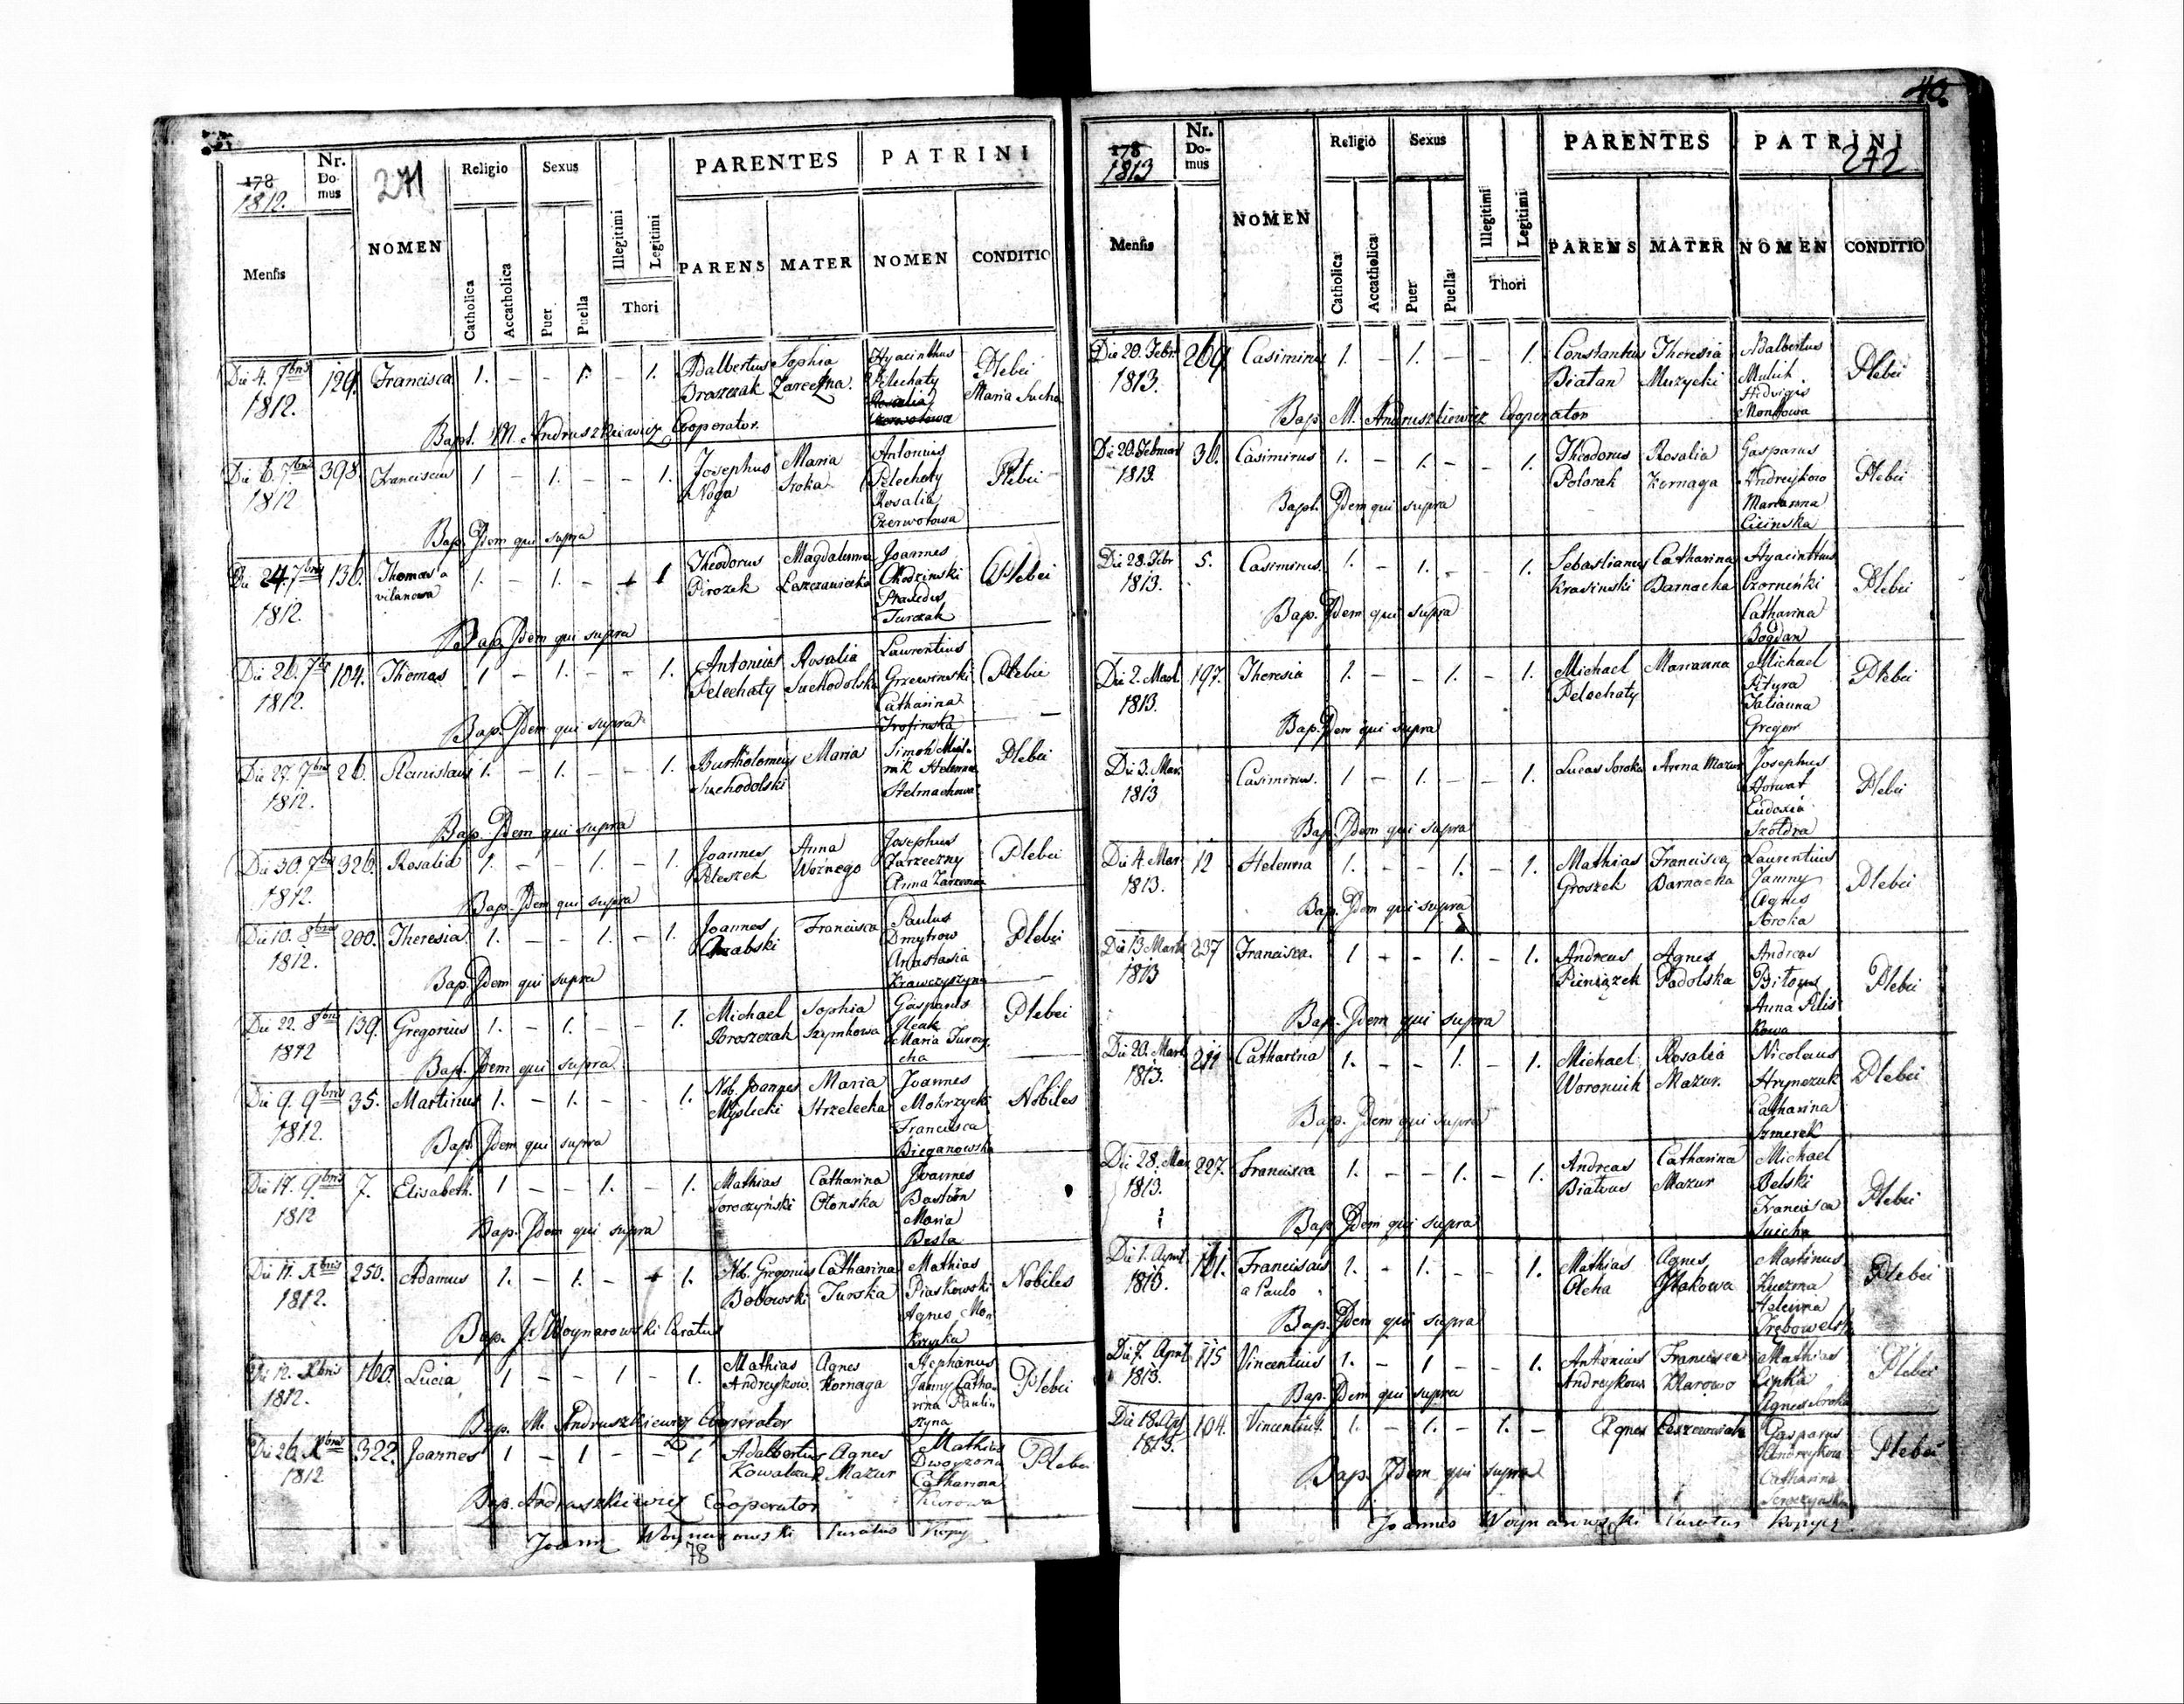 271
178
1812.
Nr. Domus
NOMEN
Religio
Sexus
PARENTES
PATRINI
Mensis
Catholica
Accatholica
Puer
Puella
Illegitimi
Legitimi
Thori
PARENS
MATER
NOMEN
CONDITIO
Die 4. 7bris 129. Francisca 1. – – 1. – 1. Adalbertus Sophia Hyacinthus Plebei
1812. Broszczak Zareczna. Pelechaty Maria Sucha
Rosalia
Czerwotowa
Bapt. M. Andruszkiewicz Cooperator.
Die 6. 7bris 398. Franciscus 1 – 1. – – 1. Josephus Maria Antonius Plebei
1812 Noga Sroka Pelechaty
Rosalia
Czerwotowa
Bap. Idem qui supra
Die 24. 7bris 136. Thomas a 1. – 1. – + 1 Theodorus Magdalenna Joannes Plebei
vilanowa Pirozek Leszczawiecka Chodzinski
1812. Praxedis
Turczak
Bap. Idem qui supra
Die 26. 7br 104. Thomas 1 – 1. – – 1. Antonius Rosalia Laurentius Plebei
1812. Pelechaty Suchodolska Grzewinski
Catharina
Trofinska
Bap. Idem qui supra
Die 27. 7bris 26. Stanislaus 1. – 1. – – 1. Bartholomeus Maria Simon Plebei
1812. Suchodolski Helenna
Stelmachowa
Bap. Idem qui supra
Die 30. 7bris 326. Rosalia 1. – – 1. – 1. Joannes Anna Josephus Plebei
1812. Peleszek Woznego Zarzeczny
Anna
Bap. Idem qui supra
Die 10. 8bris 200. Theresia. 1. – – 1. – 1. Joannes Francisca Paulus Plebei
1812. Dmytrow
Anastasia
Krawczyszyna
Bap. Idem qui supra
Die 22. 8bris 139. Gregorius 1. – 1. – – 1. Michael Sophia Gasparus Plebei
1812 Broszczak Szymkowa
Maria
Bap. Idem qui supra.
Die 9. 9bris 35. Martinus 1. – 1. – 1. Nob. Joannes Maria Joannes Nobiles
1812. Myslicki Strzelecka Mokrzycki
Francisca
Bieganowska
Bap. Idem qui supra
Die 17. 9bris 7. Elisabeth. 1 – – 1. – 1. Mathias Catharina Joannes
1812 Soroczyński Olonska Bastion
Maria
Besta
Bap. Idem qui supra
Die 11. Xbris 250. Adamus 1. – 1. – + 1. Nob. Gregorius Catharina Mathias Nobiles
1812. Bobowski Turska Piaskowski
Agnes
Bap. J. Woynarowski Curatus
Die 12. Xbris 160. Lucia 1 – – 1 – 1. Mathias Agnes Stephanus Plebei
1812. Andreykow. Kornaga Jamny Catha-
rina
Bap. M. Andruszkiewicz Cooperator
Die 26. Xbris 322. Joannes 1 – 1 – – 1 Adalbertus Agnes Mathias Plebei
1812 Kowalczuk Mazur
Catharina
Kurowa
Bap. Andruszkiewicz Cooperator
Joann Woynarowski Curatus Kopy
78
40.
272
178
1813
Nr. Domus
NOMEN
Religio
Sexus
PARENTES
PATRINI
Mensis
Catholica
Accatholica
Puer
Puella
Illegitimi
Legitimi
Thori
PARENS
MATER
NOMEN
CONDITIO
Die 20. Febr. 269 Casimirus 1. – 1. – – 1. Constantius Theresia Adalbertus Plebei
1813. Biatan Muzycki
Hedvigis
Bap. M. Andruszkiewicz Cooperator
Die 20. Februar 36. Casimirus 1. – 1. – – 1. Theodorus Rosalia Gasparus Plebei
1813. Polorak Kornaga Andreykow
Marianna
Cicinska
Bapt. Idem qui supra
Die 28. Febr 5. Casimirus. 1. – 1. – – 1. Sebastianus Catharina Hyacinthus Plebei
1813. Krasinski Barnacka
Catharina
Bogdan
Bap. Idem qui supra
Die 2. Mart. 197. Theresia 1. – – 1. – 1. Michael Marianna Michael Plebei
1813. Pelechaty Pityra
Tatianna
Gregor
Bap. Idem qui supra
Die 3. Mar. Casimirus. 1 – 1. – – 1. Lucas Soroka Anna Mazur Josephus Plebei
1813 Horwat
Eudoxia
Szoldra
Bap. Idem qui supra
Die 4. Mar. 12 Helenna 1. – – 1. – 1. Mathias Francisca Laurentius Plebei
1813. Groszek Barnacka Jamny
Agnes
Sroka
Bap. Idem qui supra
Die 13 Martii 237 Francisca. 1 + – 1. – 1. Andreas Agnes Andreas Plebei
1813 Pieniązek Podolska
Anna
Bap. Idem qui supra
Die 20. Mart. 211 Catharina 1. – – 1. – 1. Michael Rosalia Nicolaus Plebei
1813. Woroniuk Mazur. Hrynczuk
Catharina
Szmerek
Bap. Idem qui supra
Die 28. Mar. 227. Francisca 1. – – 1. – 1. Andreas Catharina Michael Plebei
1813. Mazur Belski
Francisca
Bap. Idem qui supra
Die 1. April 161. Franciscus 1. – 1. – – 1. Mathias Agnes Martinus Plebei
1813. a Paulo Kuczma
Helenna
Bap. Idem qui supra
Die 7. April 115 Vincentius 1. – 1 – – 1. Antonius Francisca Mathias Plebei
1813. Andreykow Lipka
Agnes
Bap. Idem qui supra
Die 18. Apr 104. Vincentius. 1. – 1. – 1. – Agnes Gasparus Plebei
1813. Andreykow
Catharina
Bap. Idem qui supra
Joannes Woynarowski Curatus Kopycz